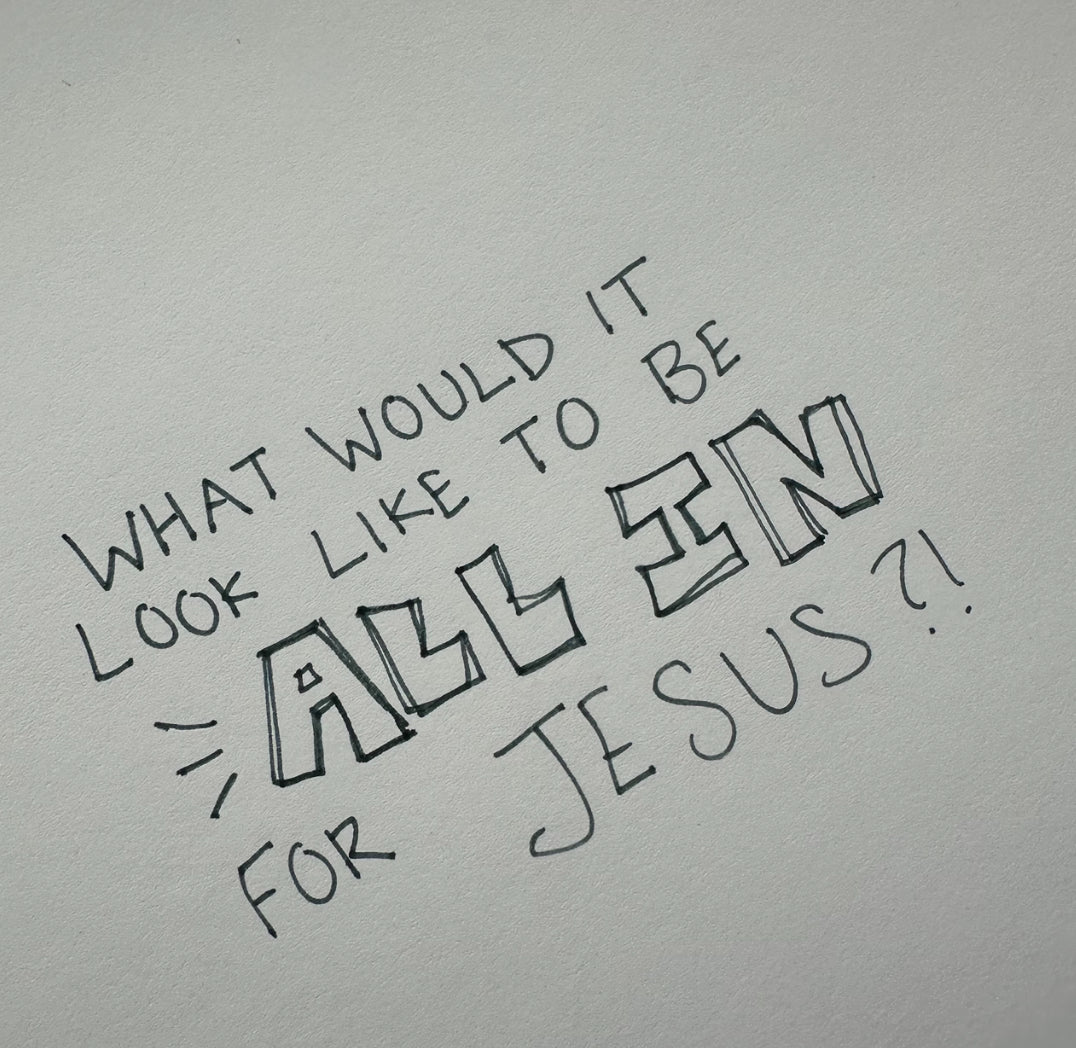 WHAT WOULD IT
LOOK LIKE TO BE
ALL IN
FOR JESUS?!